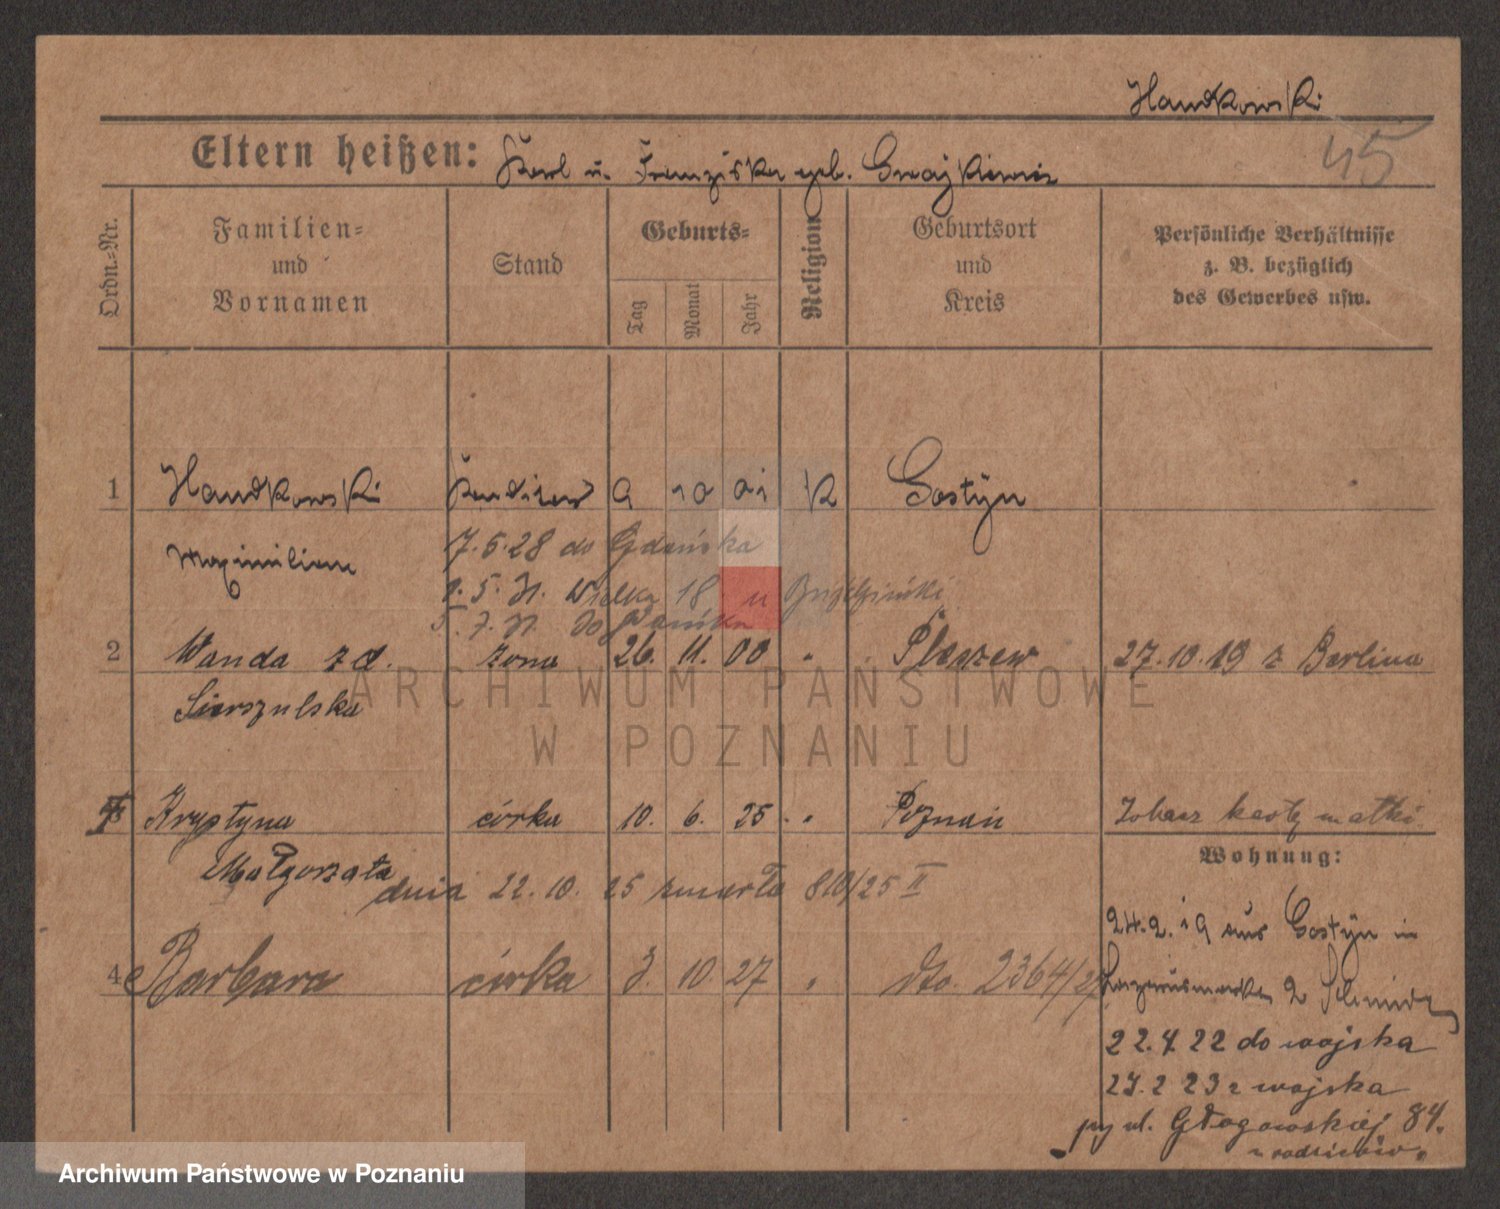 Handkowski
45
Eltern heißen: Karl u. Franziska geb.
Ordn.-Nr.
Familien-
und
Vornamen
Stand
Geburts-
Tag
Monat
Jahr
Religion
Geburtsort
und
Kreis
Persönliche Verhältnisse
z. B. bezüglich
des Gewerbes usw.
1 Handkowski 9 10 01 K Gostyn
Maximilian 7.5.28 do Gdańska
Wielka 18 u
do Gdańska
2 Wanda z d. żona 26. 11. 00 " Pleszew 27.10.19 z Berlina
Sierszulska
Krystyna córka 10. 6. 25 " Poznań Zobacz kartę matki
Małgorzata
dnia 22.10.25 zmarła 810/25 II
Wohnung:
4 Barbara córka 3. 10. 27 " dto. 2364/27
24.2.19 aus Gostyn in
2
22.4.22 do wojska
23 z wojska
przy ul. Głogowskiej 84.
u rodziców.
ARCHIWUM PAŃSTWOWE
W POZNANIU
Archiwum Państwowe w Poznaniu